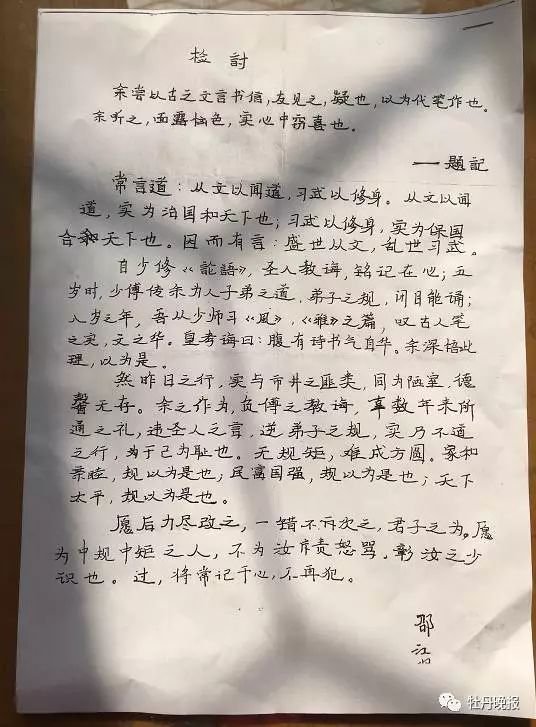 检討
余尝以古之文言书信，友见之，疑也，以为代笔作也。
余听之，面露恼色，实心中窃喜也。
——题記
常言道：从文以闻道，习武以修身。从文以闻
道，实为治国和天下也；习武以修身，实为保国
合和天下也。因而有言：盛世从文，乱世习武。
自少修《論語》，圣人教诲，铭记在心；五
岁时，少傅传余为人子弟之道，弟子之规，闭目能诵；
八岁之年，吾从少师习《風》，《雅》之篇，叹古人笔
之实，文之华。皇考诲曰：腹有诗书气自华。余深悟此
理，以为是。
然昨日之行，实与市井之匪类，同为陋室，德
馨无存。余之作为，负傅之教诲，辜数年来所
通之礼，违圣人之言，逆弟子之规，实乃不道
之行，为于己为耻也。无规矩，难成方圆。家和
亲睦，规以为是也；民富国强，规以为是也；天下
太平，规以为是也。
愿后力尽改之，一错不再次之，君子之为。愿
为中规中矩之人，不为汝斥责怒骂，彰汝之少
识也。过，将常记于心，不再犯。
邵
牡丹晚报